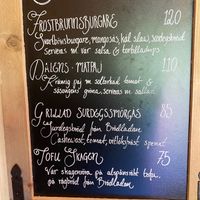 FROSTBRUNNSBURGARE 120
Svartbönsburgare, mangosås, kål, slaw, surdegsbröd
serveras m var salsa & tortillachips
DAGENS MATPAJ 110
Krämig paj m soltorkad tomat &
säsongens gröna, serveras m. sallad
GRILLAD SURDEGSSMÖRGÅS 85
Surdegsbröd från Brödladan
Cashewost, tomat, rödlök, rostad spenat
TOFU SKAGEN 75
Vår skagenröra på alspånsrökt tofu,
på rågbröd från Brödladan